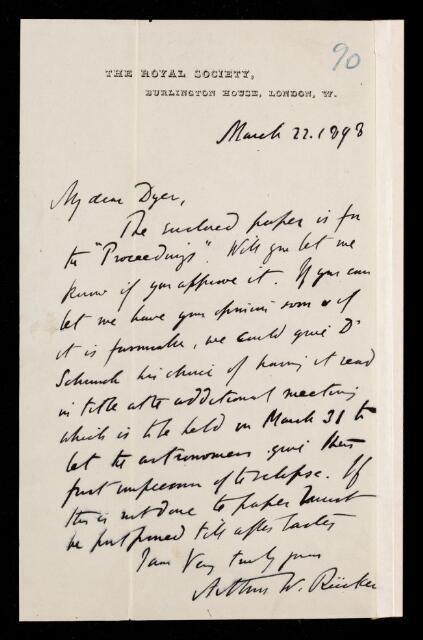 90
THE ROYAL SOCIETY,
BURLINGTON HOUSE, LONDON, W.
March 22. 1898
My dear Dyer,
The enclosed paper is for
the "Proceedings". Will you let me
know if you approve it. If you can
let me have your opinion soon & if
it is favourable, we could give Dr
Schunck his choice of having it read
in title at the additional meeting
which is to be held on March 31 to
let the astronomers give their
first impression of the Eclipse. If
this is not done the paper must
be postponed till after Easter
I am Very truly yours
Arthur W. Rücker